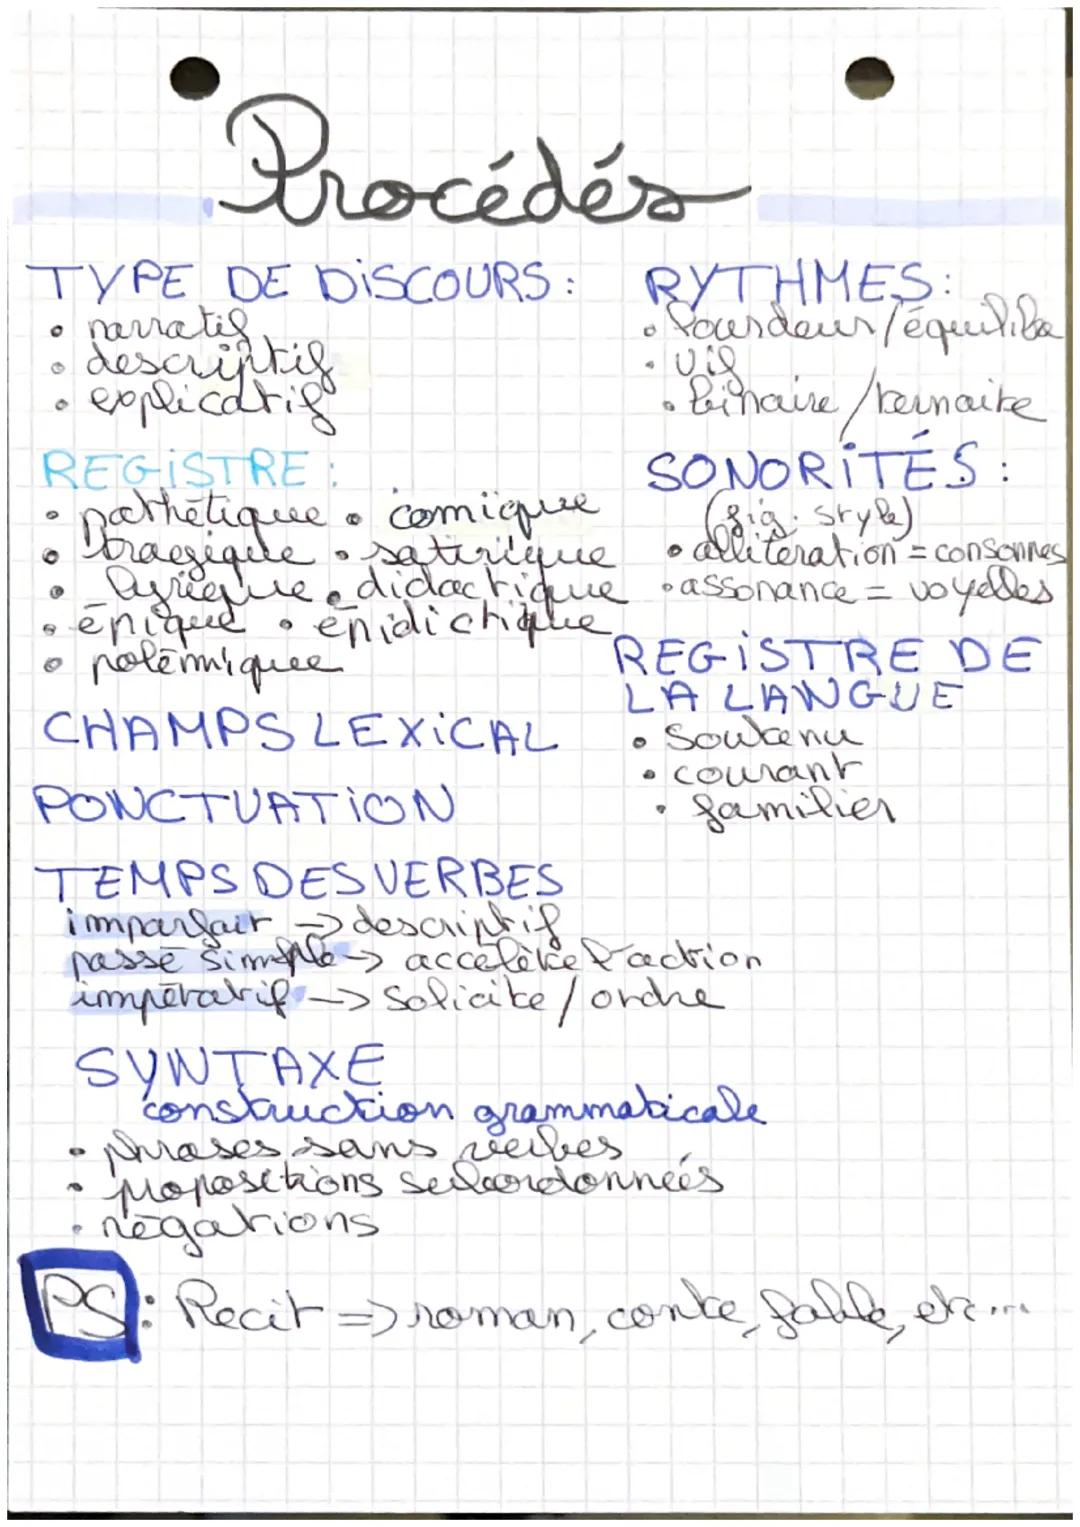 Procédés
TYPE DE DISCOURS :
• narratif
• descriptif
• explicatif
REGISTRE :
• pathétique • comique
• tragique • satirique
• lyrique • didactique
• épique • épidictique
• polémique
CHAMPS LEXICAL
PONCTUATION
TEMPS DES VERBES
imparfait -> descriptif
passé simple -> accélère l'action
impératif -> solicite / ordre
SYNTAXE
construction grammaticale
• phrases sans verbes
• propositions subordonnées
• négations
PS : Recit => roman, conte, fable, etc...
RYTHMES :
• lourdeur / équilibre
• vif
• binaire / ternaire
SONORITÉS :
(fig. style)
• allitération = consonnes
• assonance = voyelles
REGISTRE DE
LA LANGUE
• Soutenu
• courant
• familier